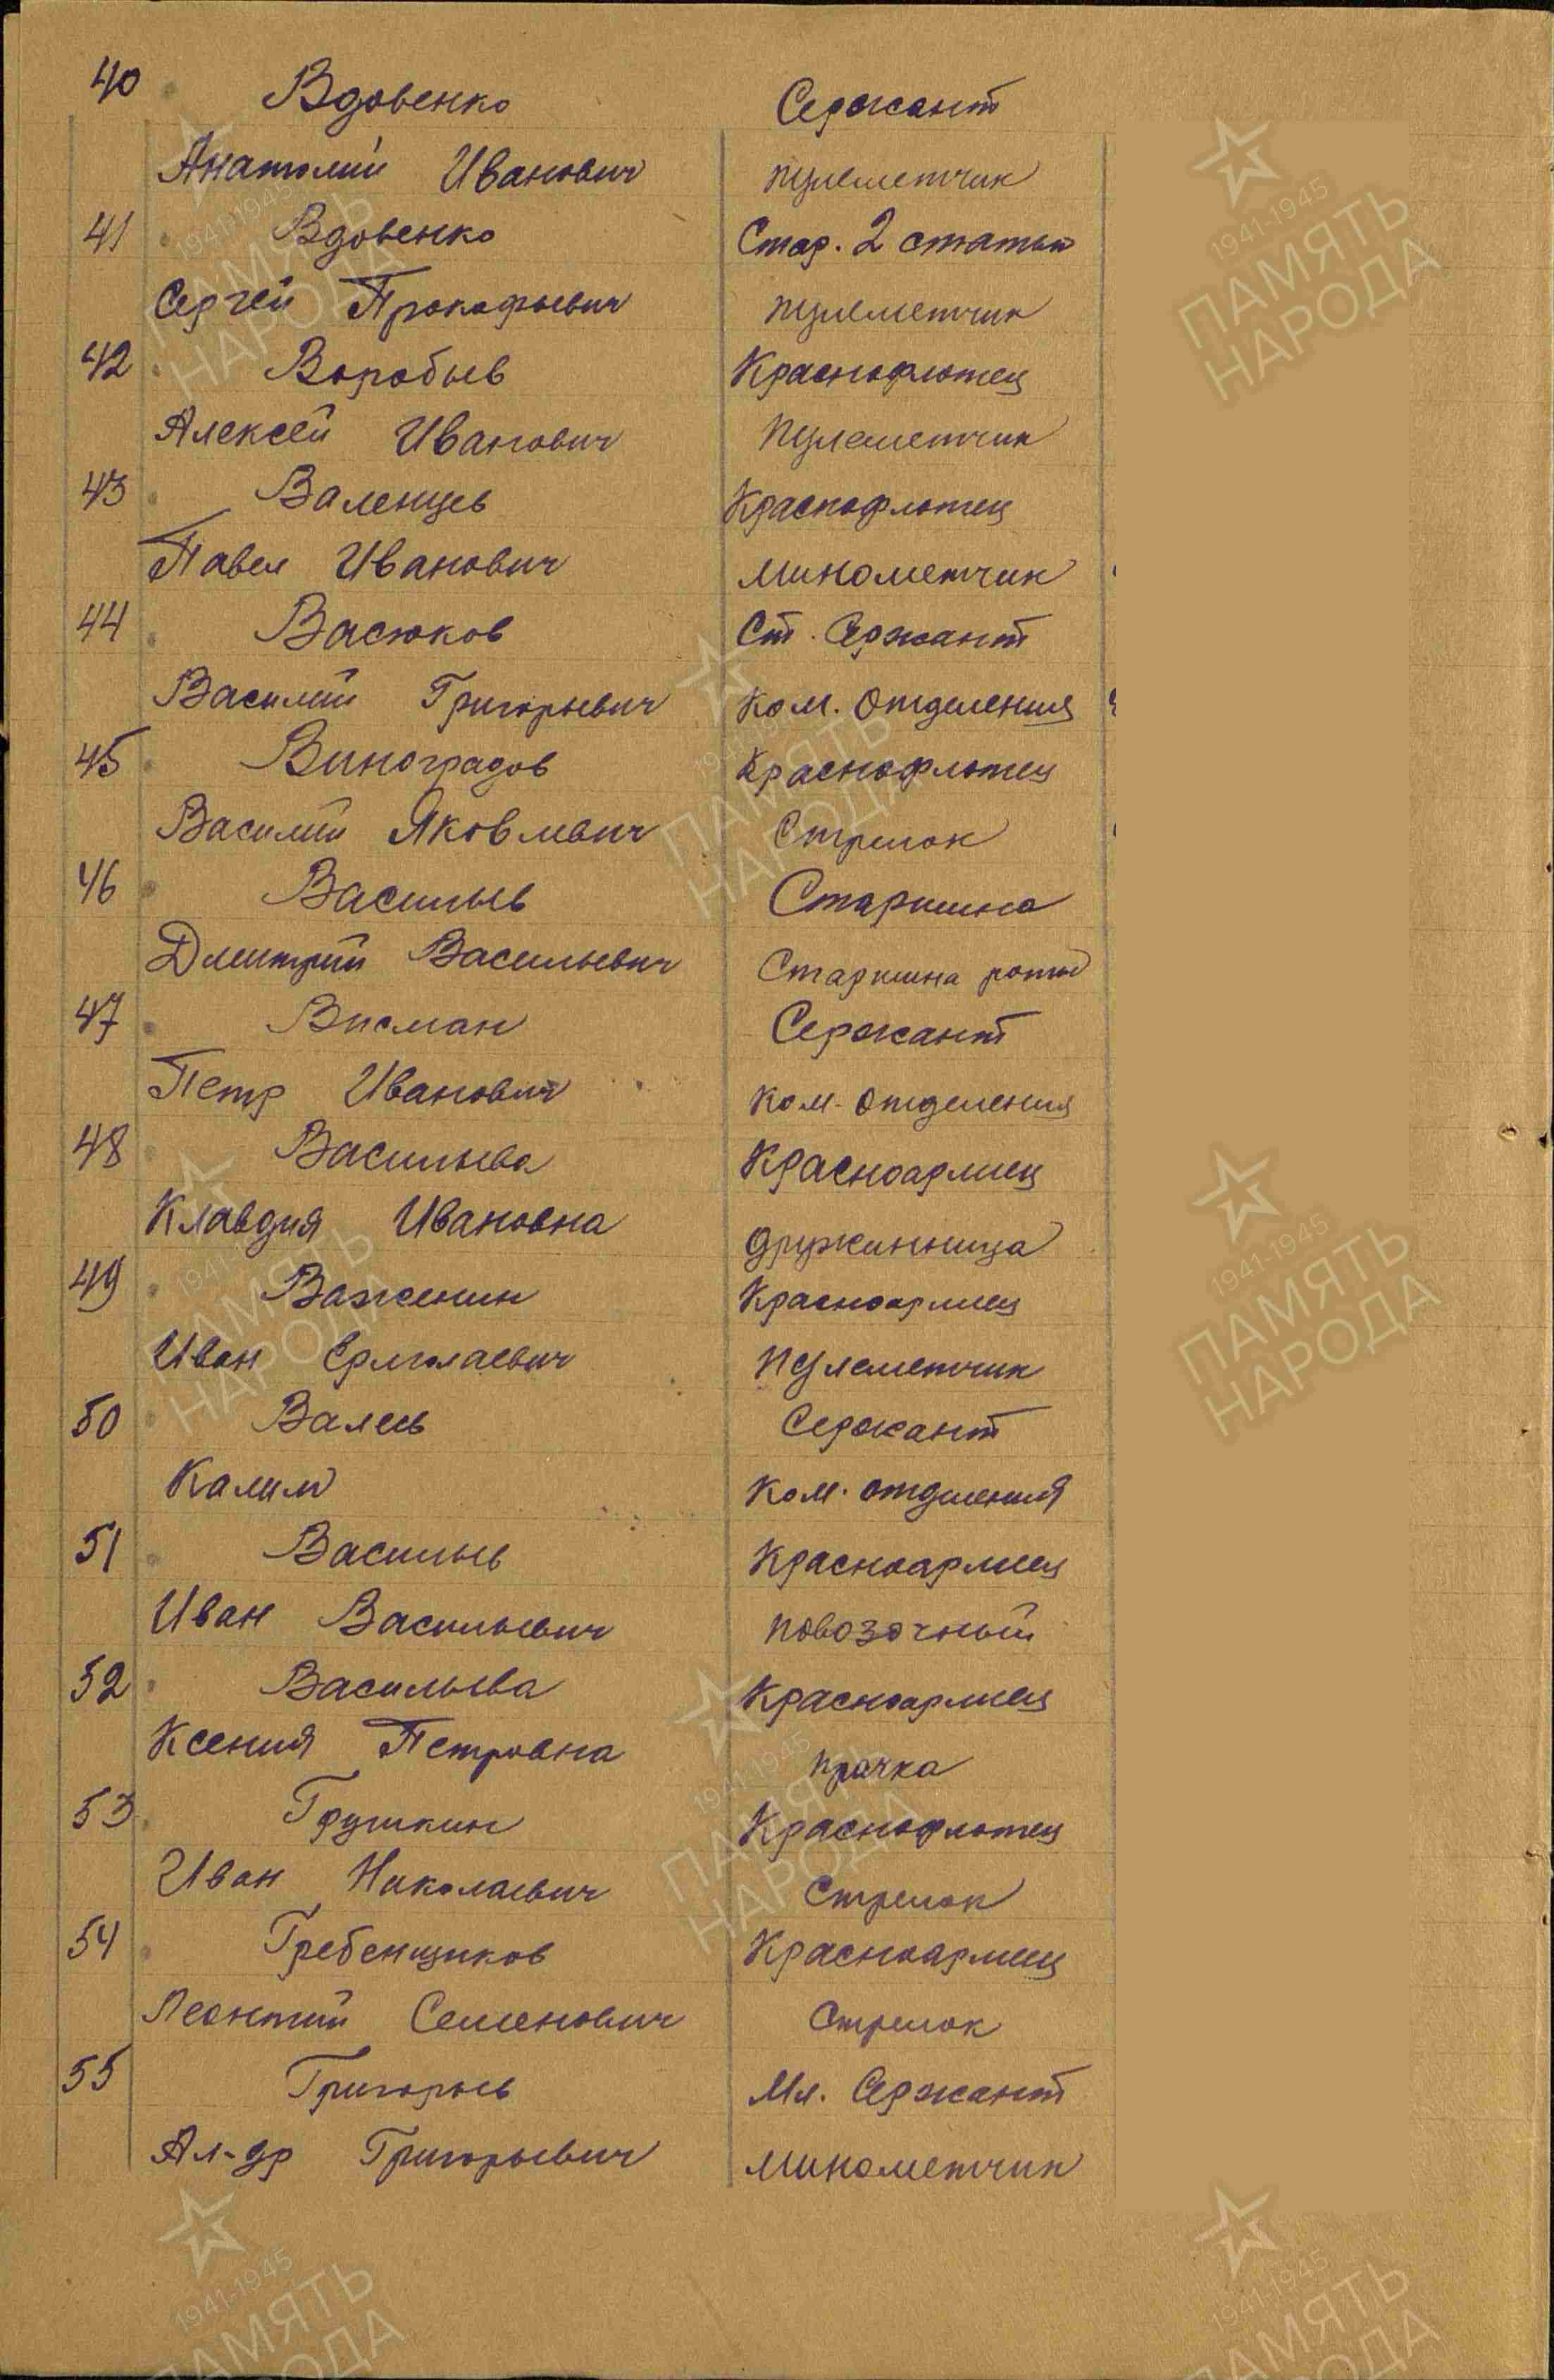 40 Вдовенко Сержант
Анатолий Иванович пулеметчик
41 Вдовенко Стар. 2 статьи
Сергей Прокофьевич пулеметчик
42 Воробьев Краснофлотец
Алексей Иванович пулеметчик
43 Валенцев Краснофлотец
Павел Иванович минометчик
44 Васюков Ст. Сержант
Василий Григорьевич Ком. Отделения
45 Виноградов Краснофлотец
Василий Яковлевич Стрелок
46 Васильев Старшина
Дмитрий Васильевич Старшина роты
47 Висман Сержант
Петр Иванович Ком. Отделения
48 Васильева Красноармеец
Клавдия Ивановна дружинница
49 Важенин Красноармеец
Иван Ермолаевич пулеметчик
50 Валеев Сержант
Калим Ком. отделения
51 Васильев Красноармеец
Иван Васильевич повозочный
52 Васильева Красноармеец
Ксения Петровна прачка
53 Грушкин Краснофлотец
Иван Николаевич Стрелок
54 Гребенщиков Красноармеец
Леонтий Семенович Стрелок
55 Григорьев Мл. Сержант
Ал-др Григорьевич минометчик
1941-1945
ПАМЯТЬ
НАРОДА